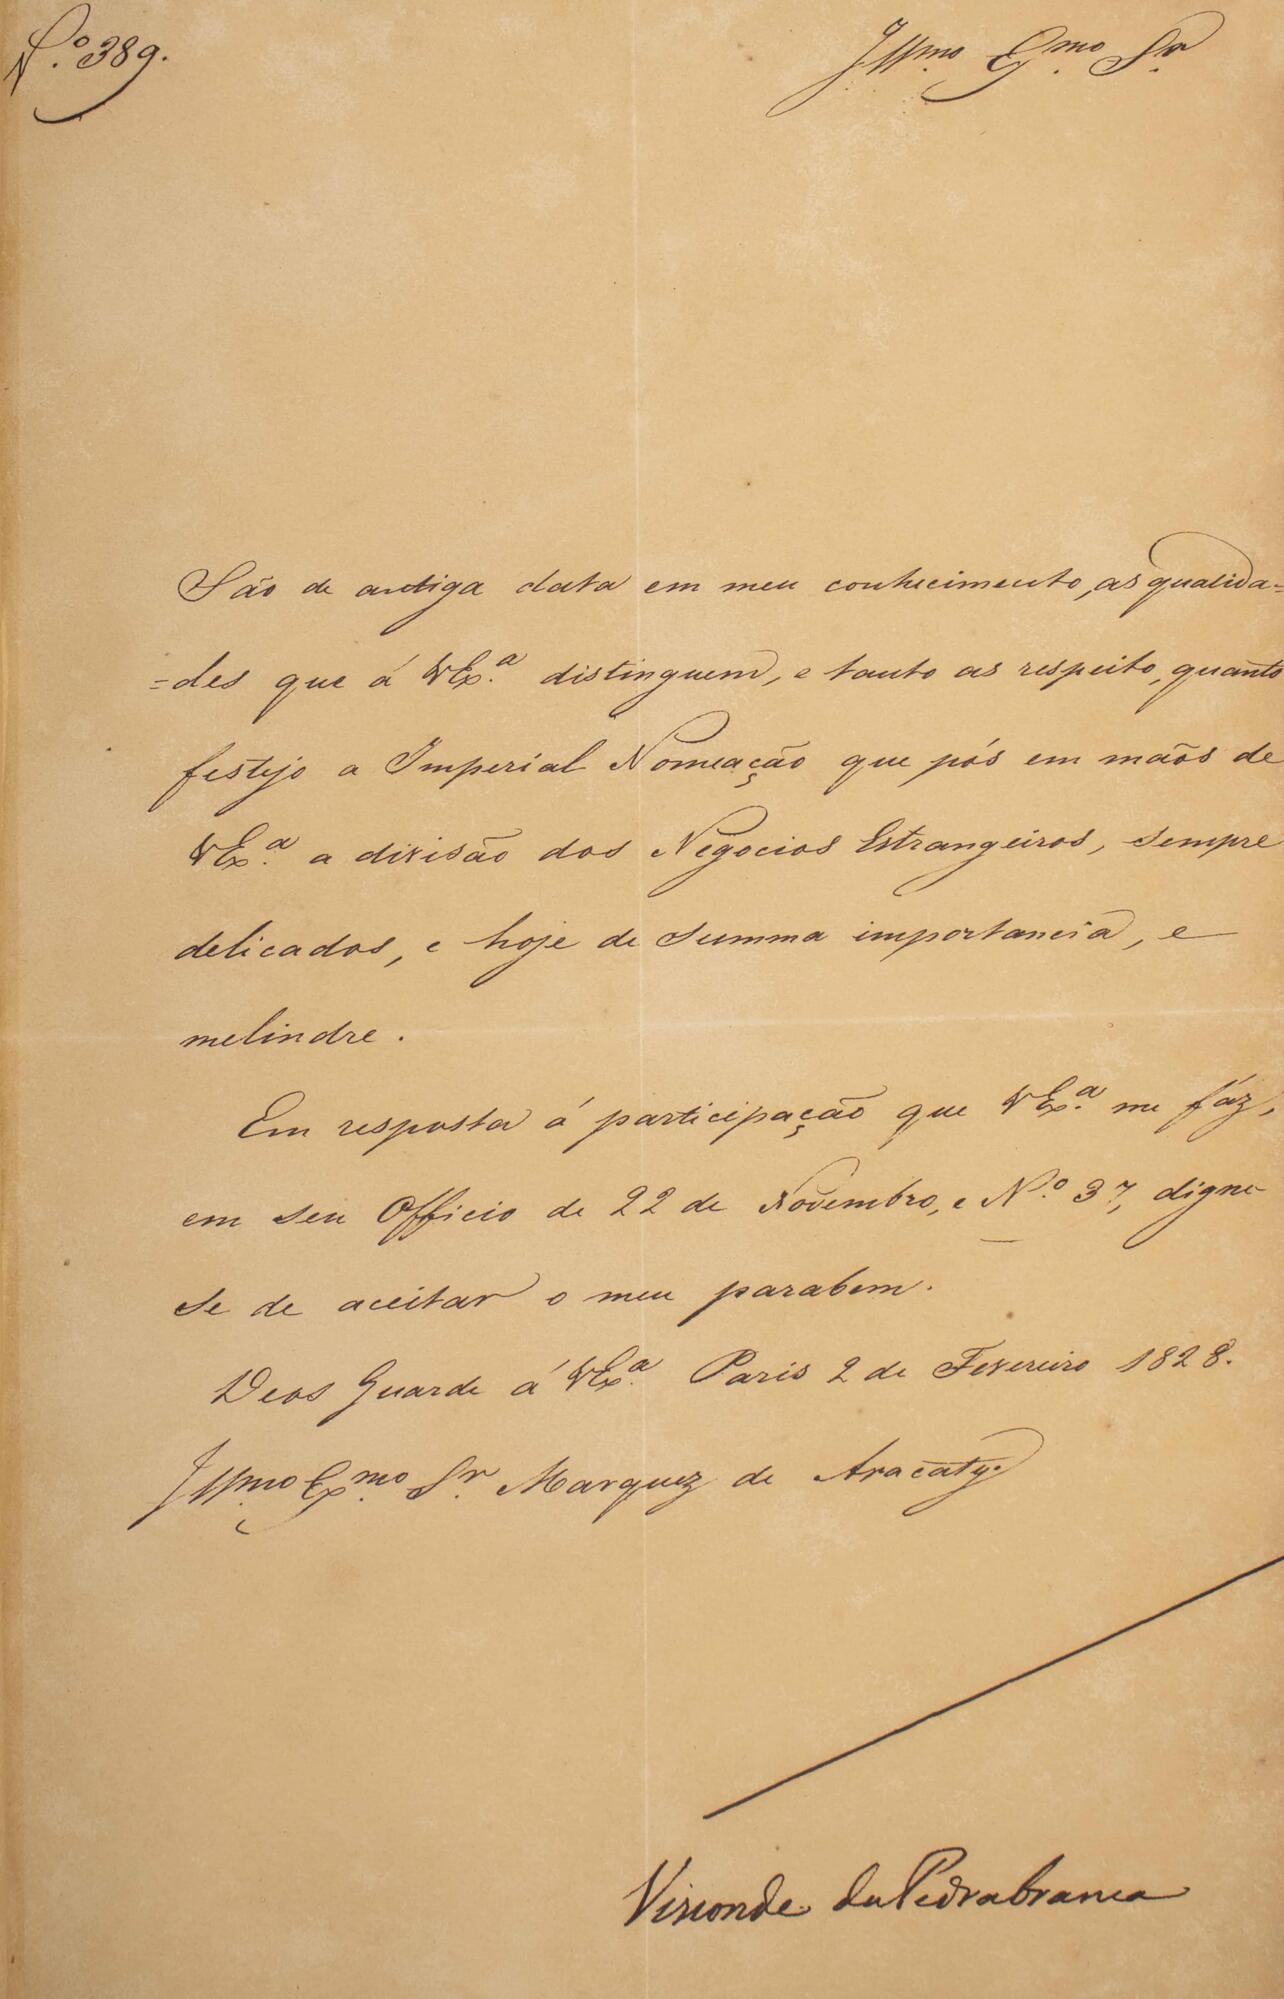 N.º 389.
Illmo. Exmo. Sr.
São de antiga data em meu conhecimento, as qualida=
=des que á VExª. distinguem, e tanto as respeito, quanto
festejo a Imperial Nomeação que pós em mãos de
VExª. a divisão dos Negocios Estrangeiros, sempre
delicados, e hoje de summa importancia, e
melindre.
Em resposta á participação que VExª. me fáz,
em seu Officio de 22 de Novembro, e N.º 37, digne
se de aceitar o meu parabem.
Deos Guarde á VExª. Paris 2 de Fevereiro 1828.
Illmo. Exmo. Sr. Marquez de Aracaty.
Visconde da Pedrabranca